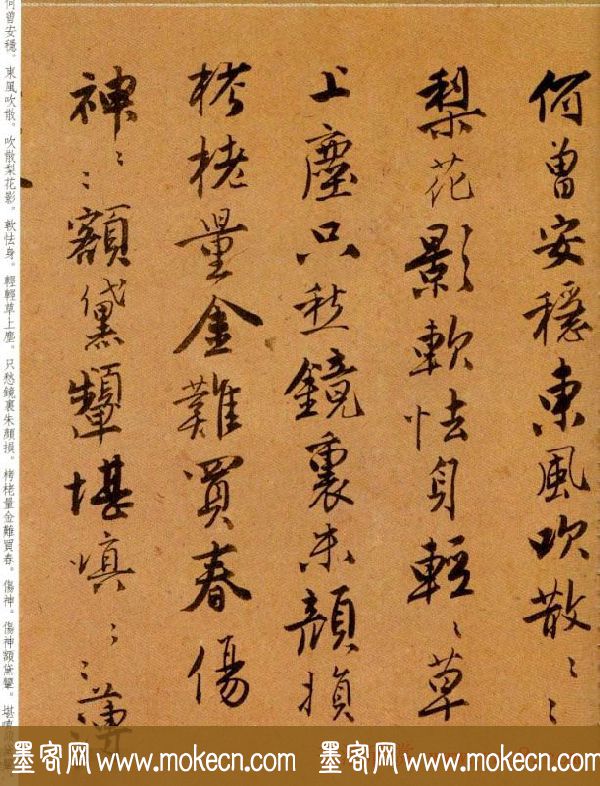 何曾安穩東風吹散〻〻
梨花影軟怯身輕〻草
上塵只愁鏡裏朱顏損
栲栳量金難買春傷
神〻〻額黛顰堪嗔〻〻薄
何曾安穩。東風吹散。吹散梨花影。軟怯身。輕輕草上塵。只愁鏡裏朱顏損。栲栳量金難買春。傷神。傷神額黛顰。堪嗔
墨客网 www.mokecn.com 墨客网 www.mokecn.com